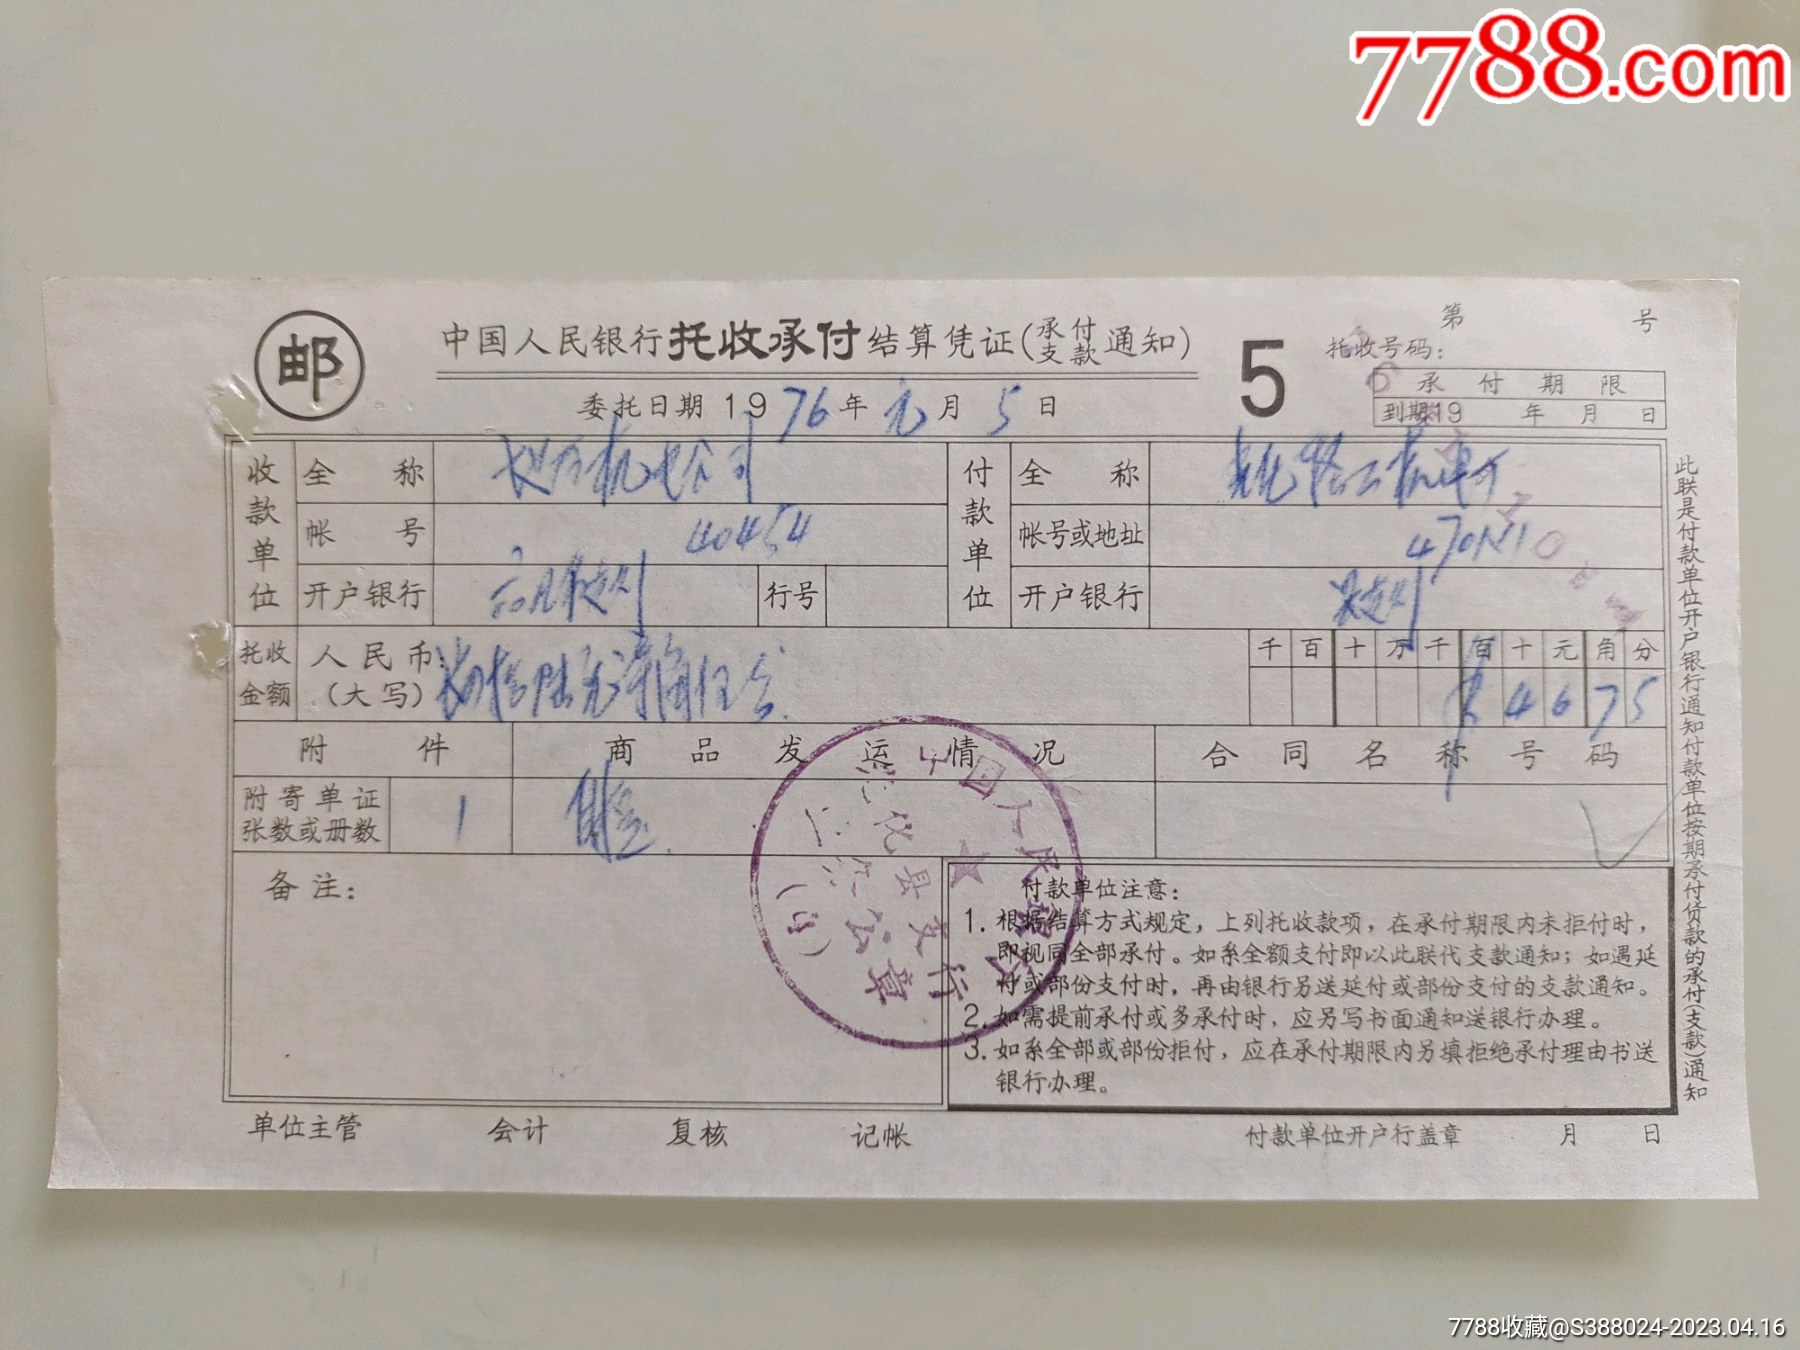 7788.com
邮
中国人民银行托收承付结算凭证(承付支款通知)
5
第 号
托收号码:
承付期限
到期19 年 月 日
委托日期 1976年元月5日
收款单位
全称 机电公司
帐号 40454
开户银行
行号
付款单位
全称
帐号或地址
开户银行
托收金额
人民币:(大写)
千百十万千百十元角分
4675
附件
商品发运情况
合同名称号码
附寄单证张数或册数 1
备注:
中国人民银行
县支行
章
付款单位注意:
1. 根据结算方式规定,上列托收款项,在承付期限内未拒付时,
即视同全部承付。如系全额支付即以此联代支款通知;如遇延
付或部份支付时,再由银行另送延付或部份支付的支款通知。
2. 如需提前承付或多承付时,应另写书面通知送银行办理。
3. 如系全部或部份拒付,应在承付期限内另填拒绝承付理由书送
银行办理。
此联是付款单位开户银行通知付款单位按期承付货款的承付(支款)通知
单位主管 会计 复核 记帐
付款单位开户行盖章 月 日
7788收藏@S388024-2023.04.16